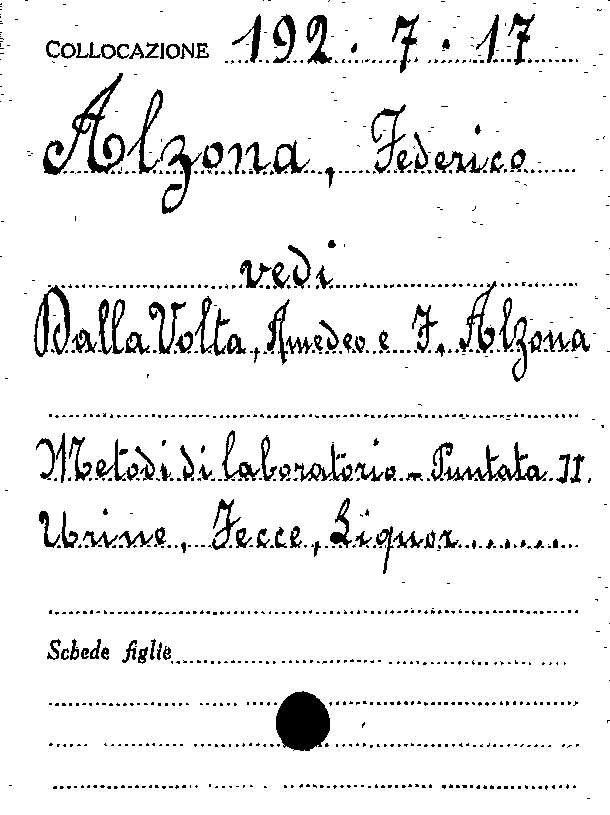 COLLOCAZIONE 192.7.17
Alzona, Federico
vedi
Dalla Volta, Amedeo e F. Alzona
Metodi di laboratorio - Puntata II.
Urine, Fecce, Liquor......
Schede figlie